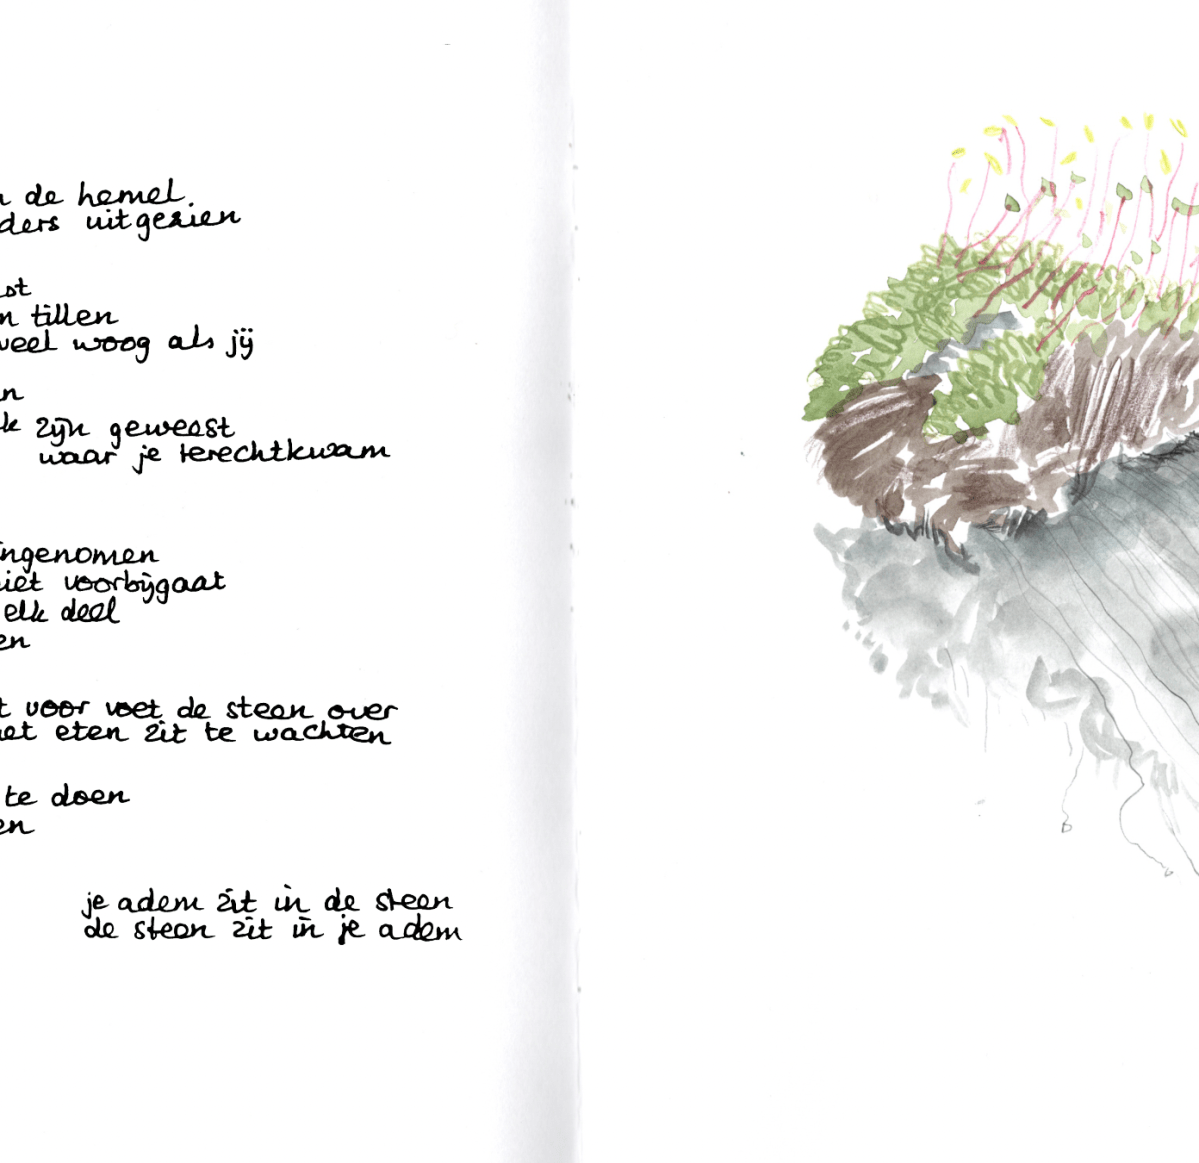 de hemel.
ders uitgezien
st
n tillen
veel woog als jij
n
k zijn geweest
waar je terechtkwam
ingenomen
iet voorbijgaat
elk deel
en
t voor voet de steen over
et eten zit te wachten
te doen
en
je adem zit in de steen
de steen zit in je adem